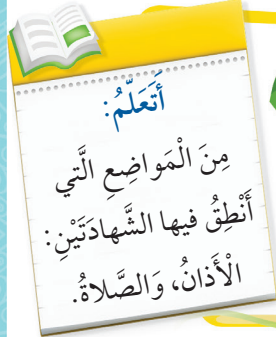 أَتَعَلَّمُ:
مِنَ الْمَواضِعِ الَّتي
أَنْطِقُ فيها الشَّهادَتَيْنِ:
الْأَذانُ، وَالصَّلاةُ.